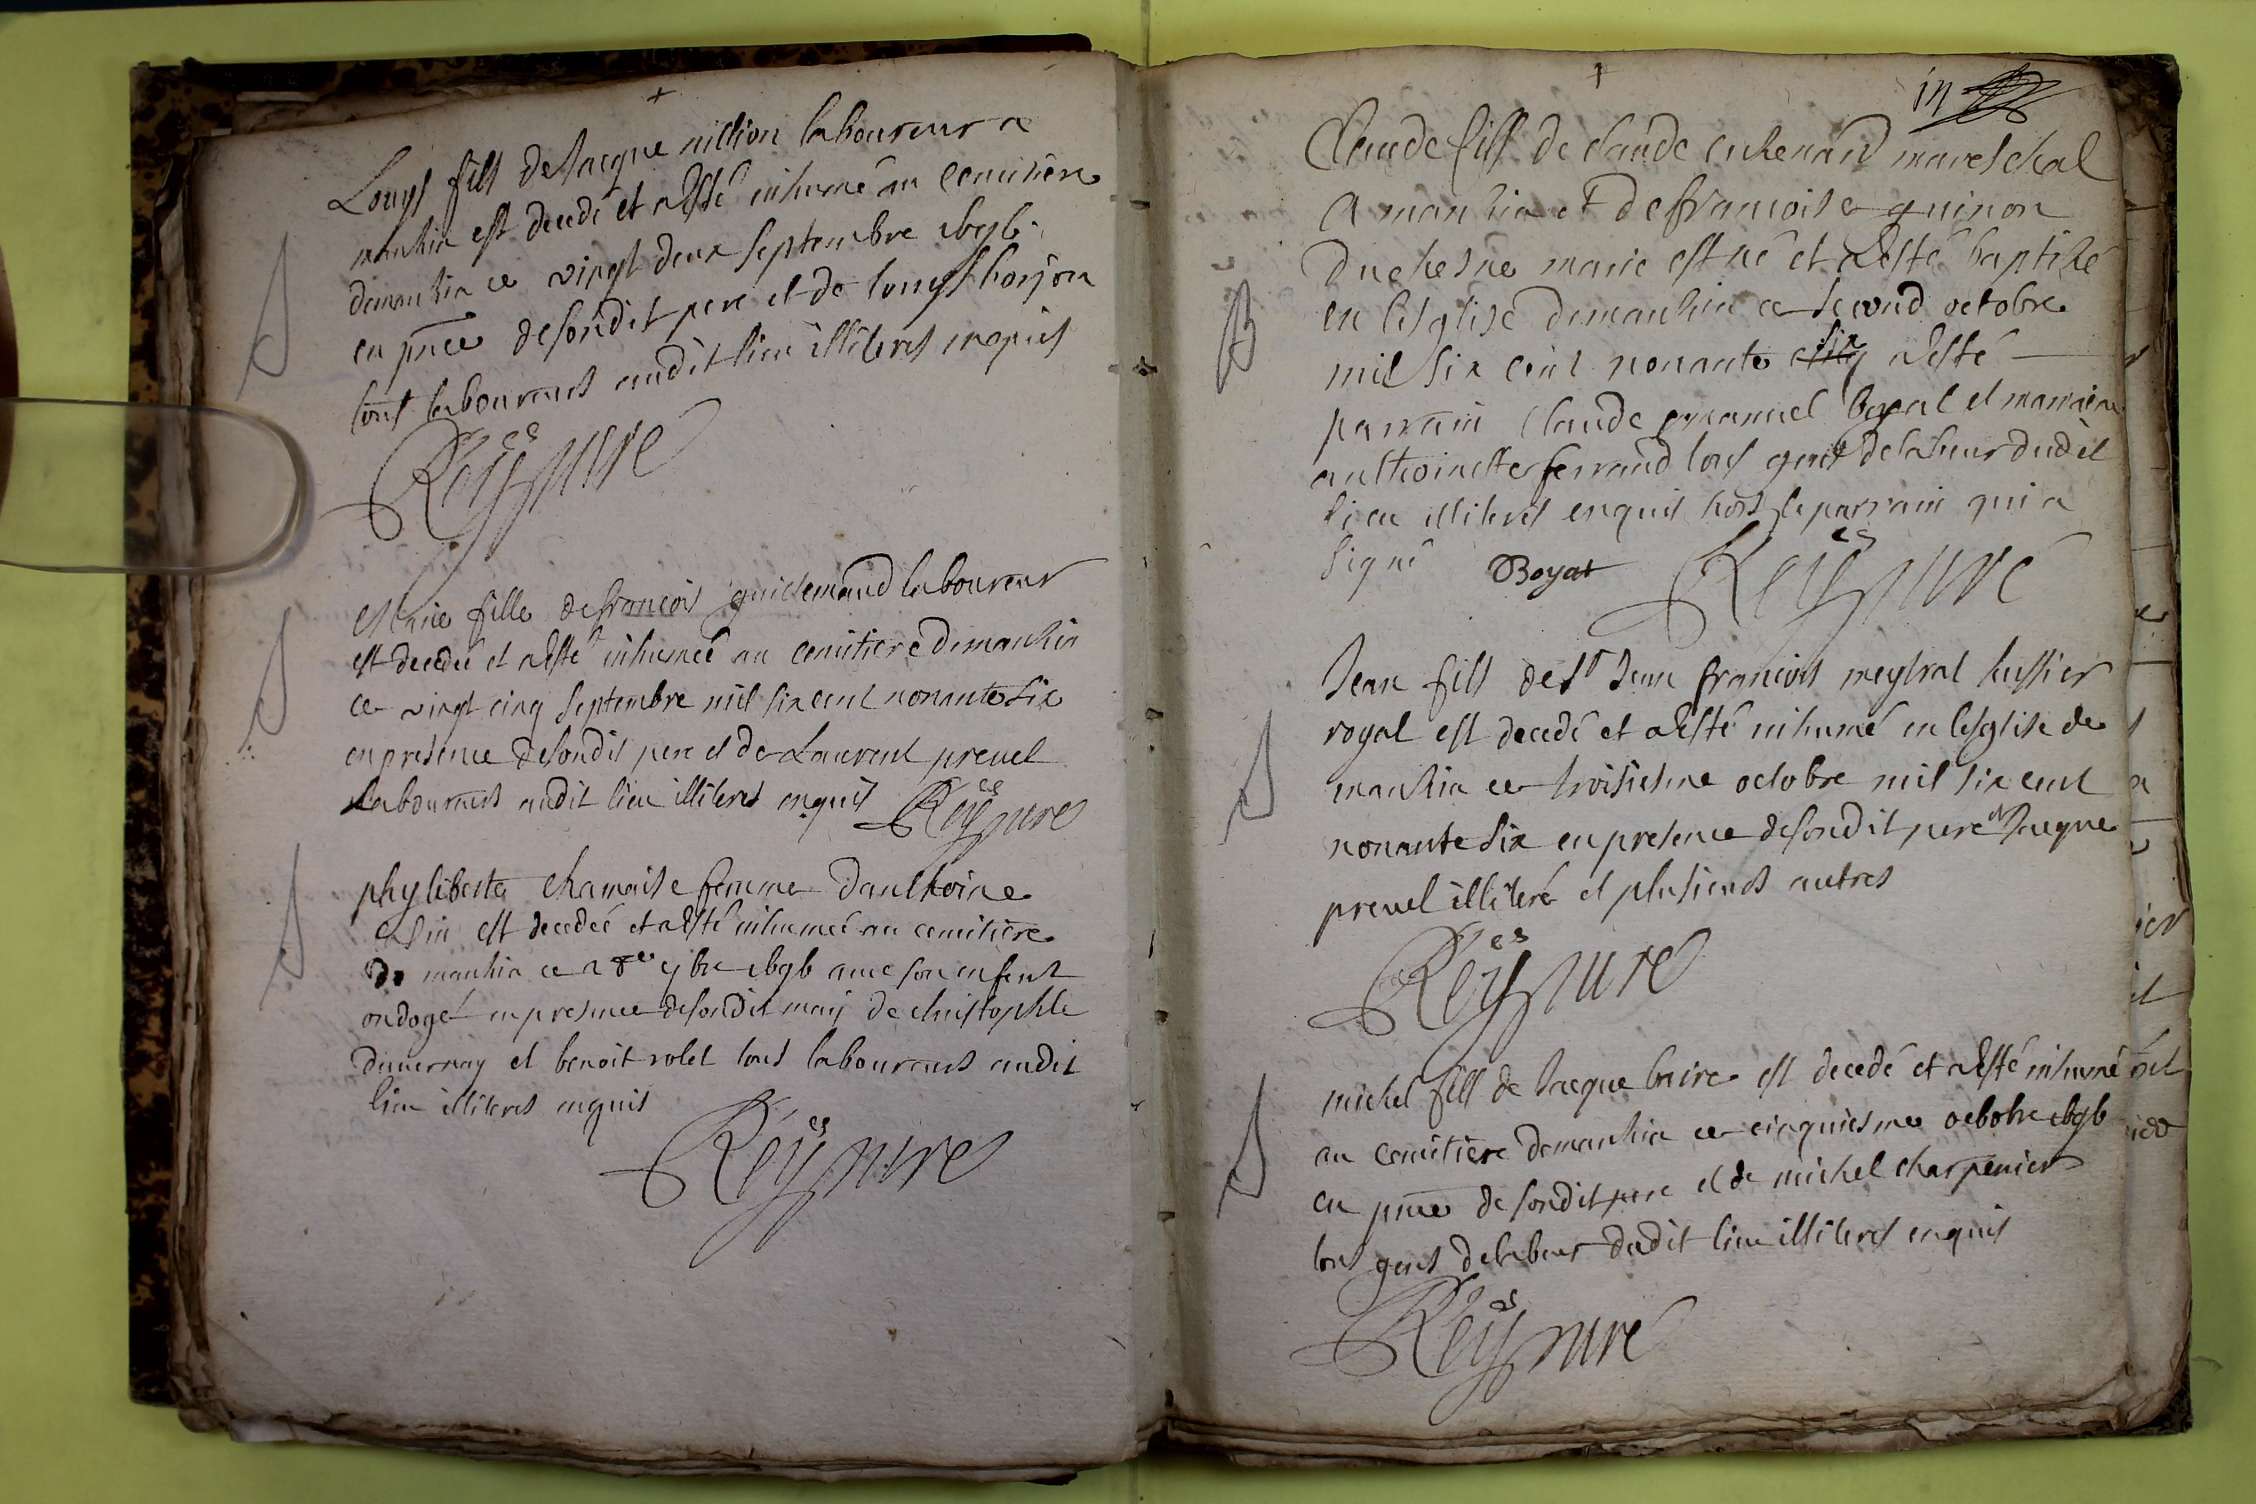 Louys fils de Jacque million laboureur a
manzia est decedé et a esté inhumé au cemitiere
de manzia ce vingt deux septembre
en pnce de sondit pere et de Louys borjon
tous laboureurs audit lieu illiteres enquis
Reÿ cure
S
Marie fille de francois guillemaud laboureur
est decedé et a esté inhumeé au cemitiere de manzia
ce vingt cinq septembre mil six cent nonante six
en presence de sondit pere et de Laurent prevel
laboureurs audit lieu illiteres enquis Reÿ cure
S
phyliberte chamoise femme d'anthoine
est decedeé et a esté inhumeé au cemitiere
de manzia ce avec son enfent
ondoyé en presence de sondit mary de christophle
duvernay et benoit rolet tous laboureurs audit
lieu illiteres enquis
Reÿ cure
S
Claude fils de claude mareschal
a manzia et de francoise guinon
duchesne marie est né et a esté baptizé
en l'esglise de manzia ce second octobre
mil six cent nonante six a esté
parrain Claude emanuel boyat et marraine
anthoinette ferrand tous gens de labeur dudit
lieu illiteres enquis hors le parrain qui a
signé Boyat Reÿ cure
B
Jean fils de Sr Jean francois meytral hussier
royal est decedé et a esté inhumé en l'esglise de
manzia ce troisiesme octobre mil six cent
nonante six en presence de sondit pere Jacque
prevel illiteré et plusieurs autres
Reÿ cure
S
michel fils de Jacque est decedé et a esté inhumé
au cemitiere de manzia ce cinquiesme octobre
en pnce de sondit pere et de michel charpenier
tous gens de labeur dudit lieu illiteres enquis
Reÿ cure
S